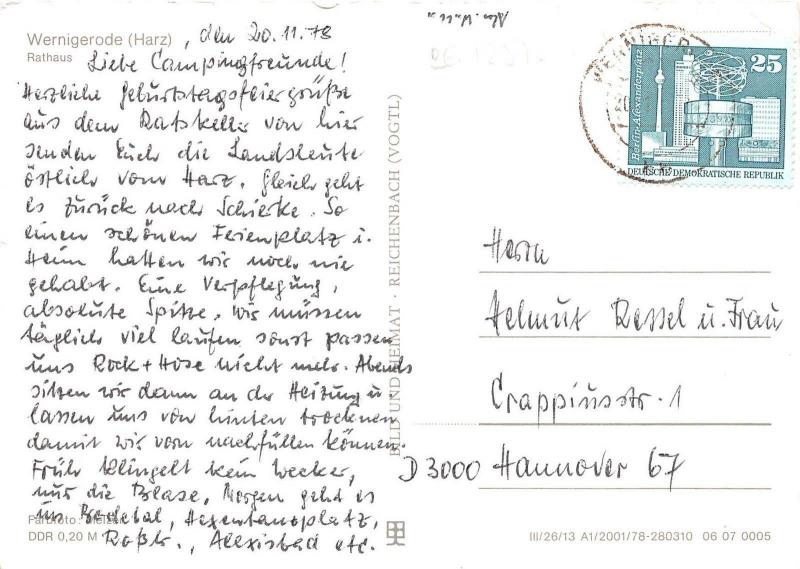 Wernigerode (Harz)
Rathaus
, den 20.11.78
Liebe Campingfreunde!
Herzliche Geburtstagsfeiergrüße
aus dem Ratskeller von hier
senden Euch die Landsleute
östlich vom Harz. Gleich geht
es zurück nach Schierke. So
einen schönen Ferienplatz i.
Heim hatten wir noch nie
gehabt. Eine Verpflegung,
absolute Spitze. Wir müssen
täglich viel laufen sonst passen
uns Rock + Hose nicht mehr. Abends
sitzen wir dann an der Heizung u.
lassen uns von hinten trocknen
damit wir vorn nachfüllen können.
Früh klingelt kein Wecker,
nur die Blase, Morgen geht es
ins Bodetal, Hexentanzplatz,
Roßtr., Alexisbad etc.
Farbfoto:
DDR 0,20 M
BILD UND HEIMAT · REICHENBACH (VOGTL)
25
Berlin-Alexanderplatz
DEUTSCHE DEMOKRATISCHE REPUBLIK
Herrn
Helmut Ressel u. Frau
Crappiusstr. 1
D 3000 Hannover 67
III/26/13 A1/2001/78-280310 06 07 0005